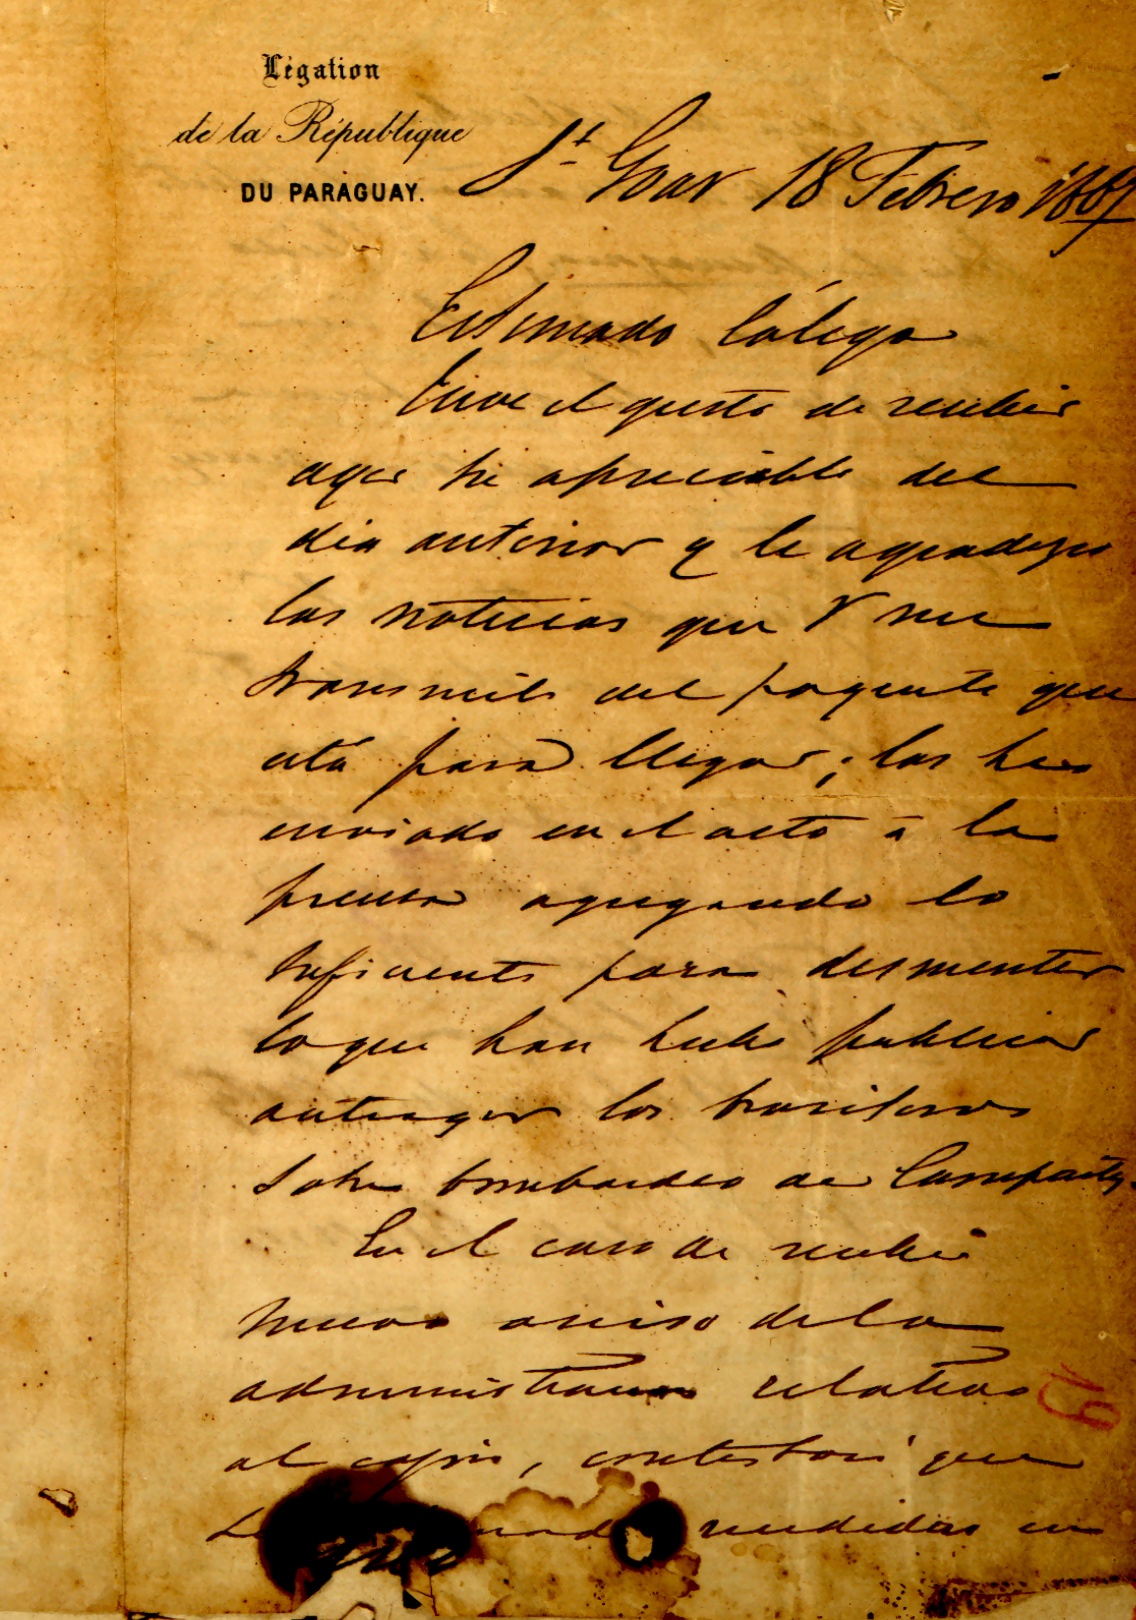 Légation
de la République
DU PARAGUAY.
St Goar 18 Febrero 1867
Estimado Cólega
Tuve el gusto de recibir
ayer su apreciable del
dia anterior y le agradezco
las noticias que V me
transmite del paquete que
está para llegar; las he
enviado en el acto á la
prensa agregando lo
suficiente para desmentir
lo que han hecho publicar
anteayer los brasileros
sobre bombardeo de Curupaity.
En el caso de recibir
nuevo aviso de la
administracion relativo
al cajon, contestaré que
medidas en
19